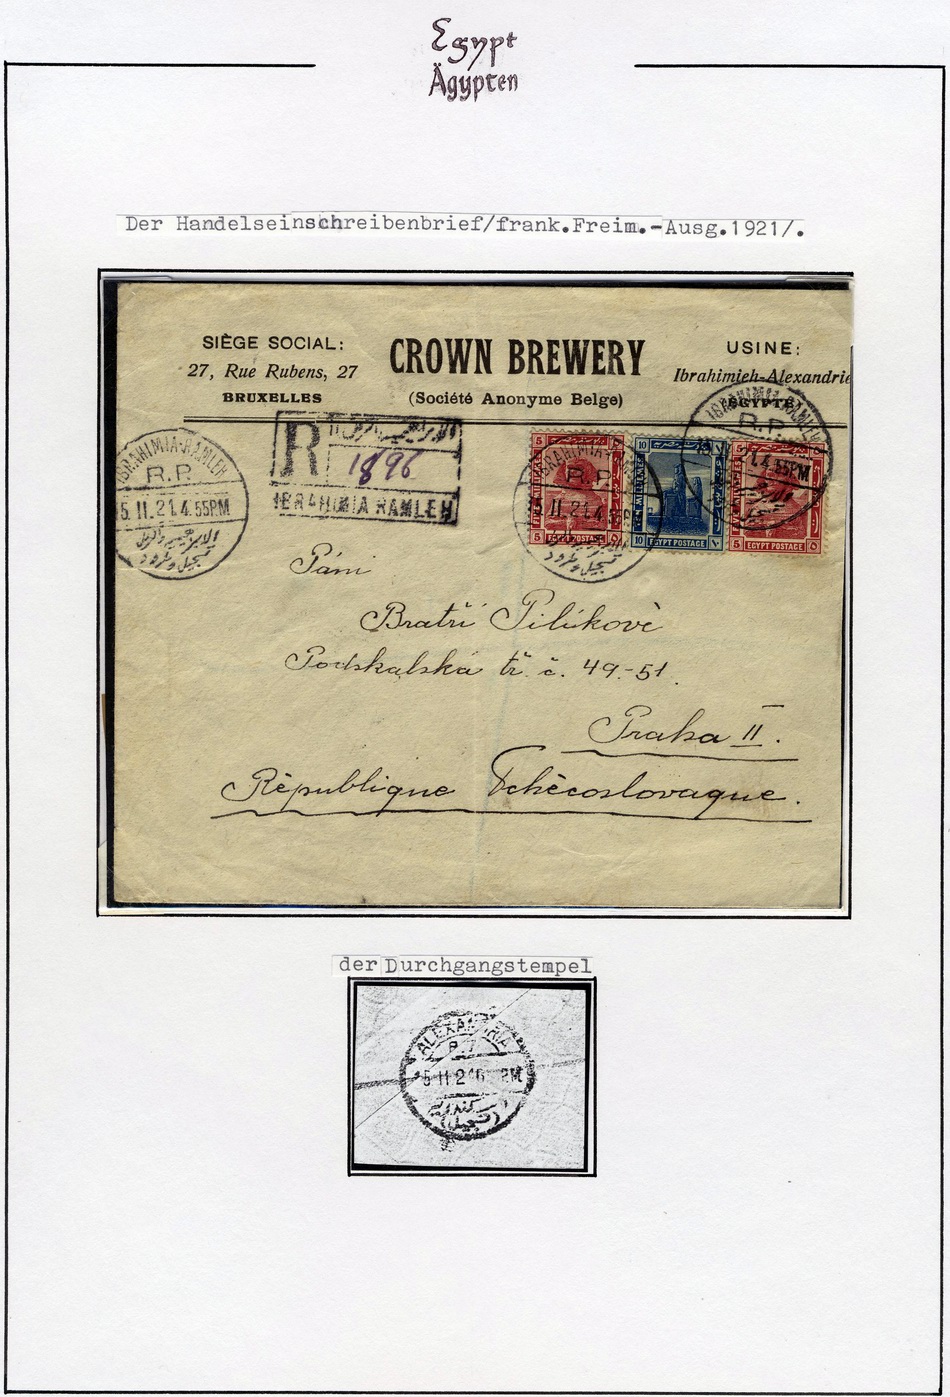 Egypt
Ägypten
Der Handelseinschreibenbrief/frank.Freim.-Ausg.1921/.
SIÈGE SOCIAL:
27, Rue Rubens, 27
BRUXELLES
CROWN BREWERY
(Société Anonyme Belge)
USINE:
Ibrahimieh-Alexandrie
ÉGYPTE)
IBRAHIMIA-RAMLEH
R.P.
5.11.21.4.55PM
R
1896
IBRAHIMIA RAMLEH
IBRAHIMIA
R.P.
5.11.21.4
IBRAHIMIA-RAMLEH
R.P.
21.4.55PM
5
5
EGYPT POSTAGE
5
10
TEN MILLIEMES
10
EGYPT POSTAGE
5
5
EGYPT POSTAGE
Páni
Bratři Pilíkově
Podskalská tř. č. 49-51.
Praha II.
République Tchécoslovaque.
der Durchgangstempel
ALEXANDRIA
5 11 2
PM